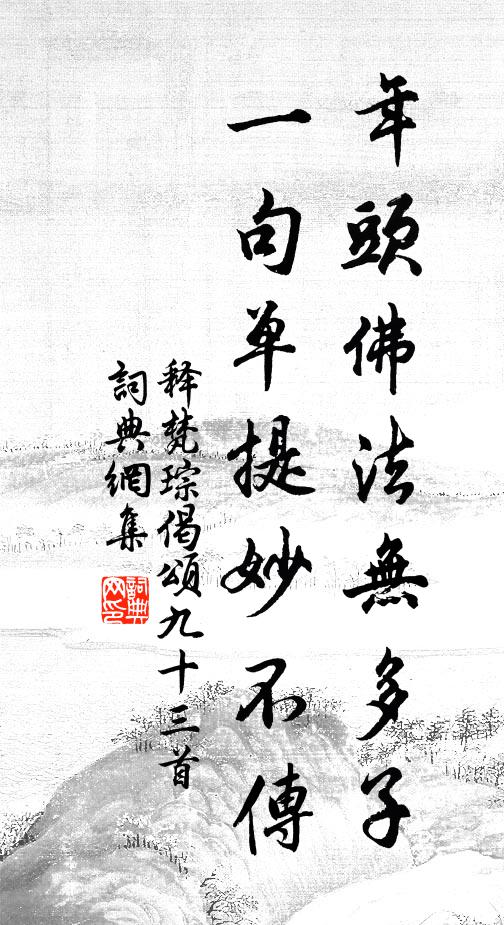 年頭佛法無多子
一句单提妙不傳
释梵琮偈頌九十三首
詞典網集
詞典
网印